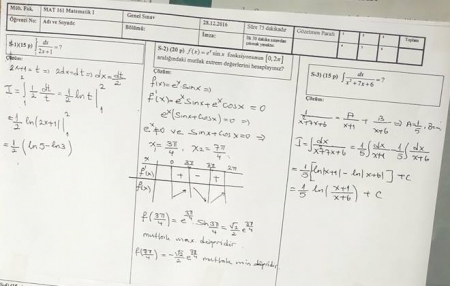 Müh. Fak. MAT 161 Matematik 1 Genel Sınav 28.12.2016 Süre 75 dakikadır Gözetmen Parafı Toplam
Öğrenci No: Adı ve Soyadı: Bölümü: İmza: İlk 30 dakika sınavdan çıkmak yasaktır.
S-1)(15 p) ∫₁² dx/(2x+1) = ?
Çözüm:
2x+1=t ⇒ 2dx=dt ⇒ dx=dt/2
I = ∫₁² 1/2 dt/t = 1/2 ln t |₁²
= 1/2 ln|2x+1| |₁²
= 1/2 (ln5-ln3)
S-2) (20 p) f(x)=eˣ sin x fonksiyonunun [0,2π]
aralığındaki mutlak extrem değerlerini hesaplayınız?
Çözüm:
f(x)=eˣ sinx ⇒
f'(x)=eˣ sinx + eˣ cosx = 0
eˣ(sinx+cosx)=0 ⇒
eˣ≠0 ve sinx+cosx=0 ⇒
x₁=3π/4, x₂=7π/4
x 0 3π/4 7π/4 2π
f'(x) + - +
f(x)
f(3π/4) = e^(3π/4) . sin 3π/4 = √2/2 e^(3π/4)
mutlak max değeridir.
f(7π/4) = -√2/2 e^(7π/4) mutlak min değeridir.
S-3) (15 p) ∫ dx/(x²+7x+6) = ?
Çözüm:
1/(x²+7x+6) = A/(x+1) + B/(x+6) ⇒ A=1/5,
I = ∫ dx/(x²+7x+6) = 1/5 ∫ dx/(x+1) - 1/5 ∫ dx/(x+6)
= 1/5 [ln|x+1| - ln|x+6|] + C
= 1/5 ln(x+1/x+6) + C